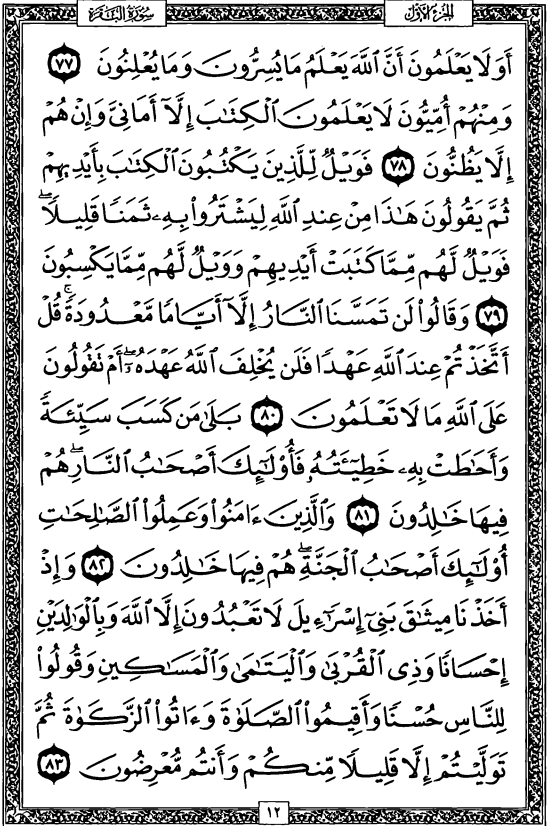 الجزء الأول
سورة البقرة
أَوَلَا يَعْلَمُونَ أَنَّ اللَّهَ يَعْلَمُ مَا يُسِرُّونَ وَمَا يُعْلِنُونَ ﴿٧٧﴾
وَمِنْهُمْ أُمِّيُّونَ لَا يَعْلَمُونَ الْكِتَٰبَ إِلَّآ أَمَانِيَّ وَإِنْ هُمْ
إِلَّا يَظُنُّونَ ﴿٧٨﴾ فَوَيْلٌ لِّلَّذِينَ يَكْتُبُونَ الْكِتَٰبَ بِأَيْدِيهِمْ
ثُمَّ يَقُولُونَ هَٰذَا مِنْ عِندِ اللَّهِ لِيَشْتَرُوا۟ بِهِۦ ثَمَنًا قَلِيلًا ۖ
فَوَيْلٌ لَّهُم مِّمَّا كَتَبَتْ أَيْدِيهِمْ وَوَيْلٌ لَّهُم مِّمَّا يَكْسِبُونَ
﴿٧٩﴾ وَقَالُوا۟ لَن تَمَسَّنَا النَّارُ إِلَّآ أَيَّامًا مَّعْدُودَةً ۚ قُلْ
أَتَّخَذْتُمْ عِندَ اللَّهِ عَهْدًا فَلَن يُخْلِفَ اللَّهُ عَهْدَهُۥٓ ۖ أَمْ تَقُولُونَ
عَلَى اللَّهِ مَا لَا تَعْلَمُونَ ﴿٨٠﴾ بَلَىٰ مَن كَسَبَ سَيِّئَةً
وَأَحَٰطَتْ بِهِۦ خَطِيٓـَٔتُهُۥ فَأُو۟لَٰٓئِكَ أَصْحَٰبُ النَّارِ ۖ هُمْ
فِيهَا خَٰلِدُونَ ﴿٨١﴾ وَالَّذِينَ ءَامَنُوا۟ وَعَمِلُوا۟ الصَّٰلِحَٰتِ
أُو۟لَٰٓئِكَ أَصْحَٰبُ الْجَنَّةِ ۖ هُمْ فِيهَا خَٰلِدُونَ ﴿٨٢﴾ وَإِذْ
أَخَذْنَا مِيثَٰقَ بَنِىٓ إِسْرَٰٓءِيلَ لَا تَعْبُدُونَ إِلَّا اللَّهَ وَبِالْوَٰلِدَيْنِ
إِحْسَانًا وَذِى الْقُرْبَىٰ وَالْيَتَٰمَىٰ وَالْمَسَٰكِينِ وَقُولُوا۟
لِلنَّاسِ حُسْنًا وَأَقِيمُوا۟ الصَّلَوٰةَ وَءَاتُوا۟ الزَّكَوٰةَ ثُمَّ
تَوَلَّيْتُمْ إِلَّا قَلِيلًا مِّنكُمْ وَأَنتُم مُّعْرِضُونَ ﴿٨٣﴾
١٢